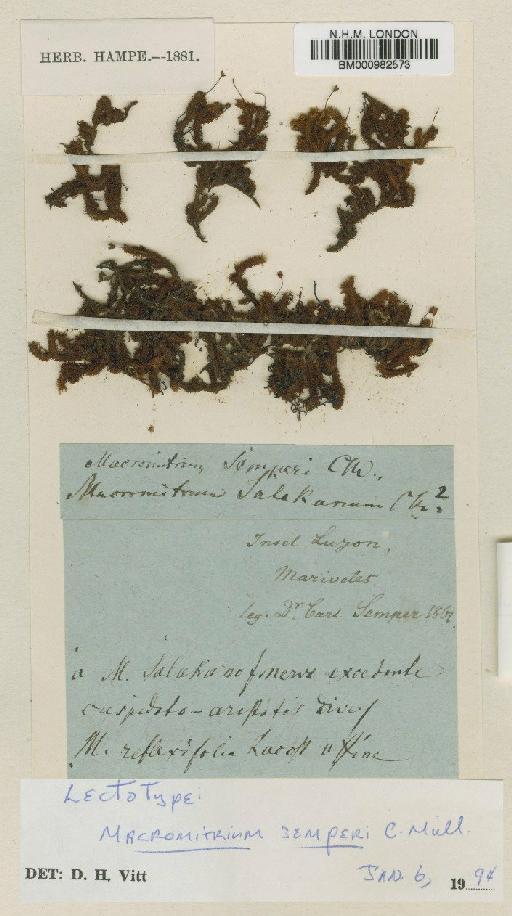 HERB. HAMPE.--1881.
N.H.M. LONDON
BM000982573
Macromitrium Semperi CM.
Macromitrium Salakanum CM?
Insel Luzon,
Mariveles
leg. Dr Carl Semper 1861
a M. Salakano nervo excedente
cuspidato-aristatis
M. reflexifolio affine
Lectotype:
MACROMITRIUM SEMPERI C. Müll.
DET: D. H. Vitt JAN. 6, 1994